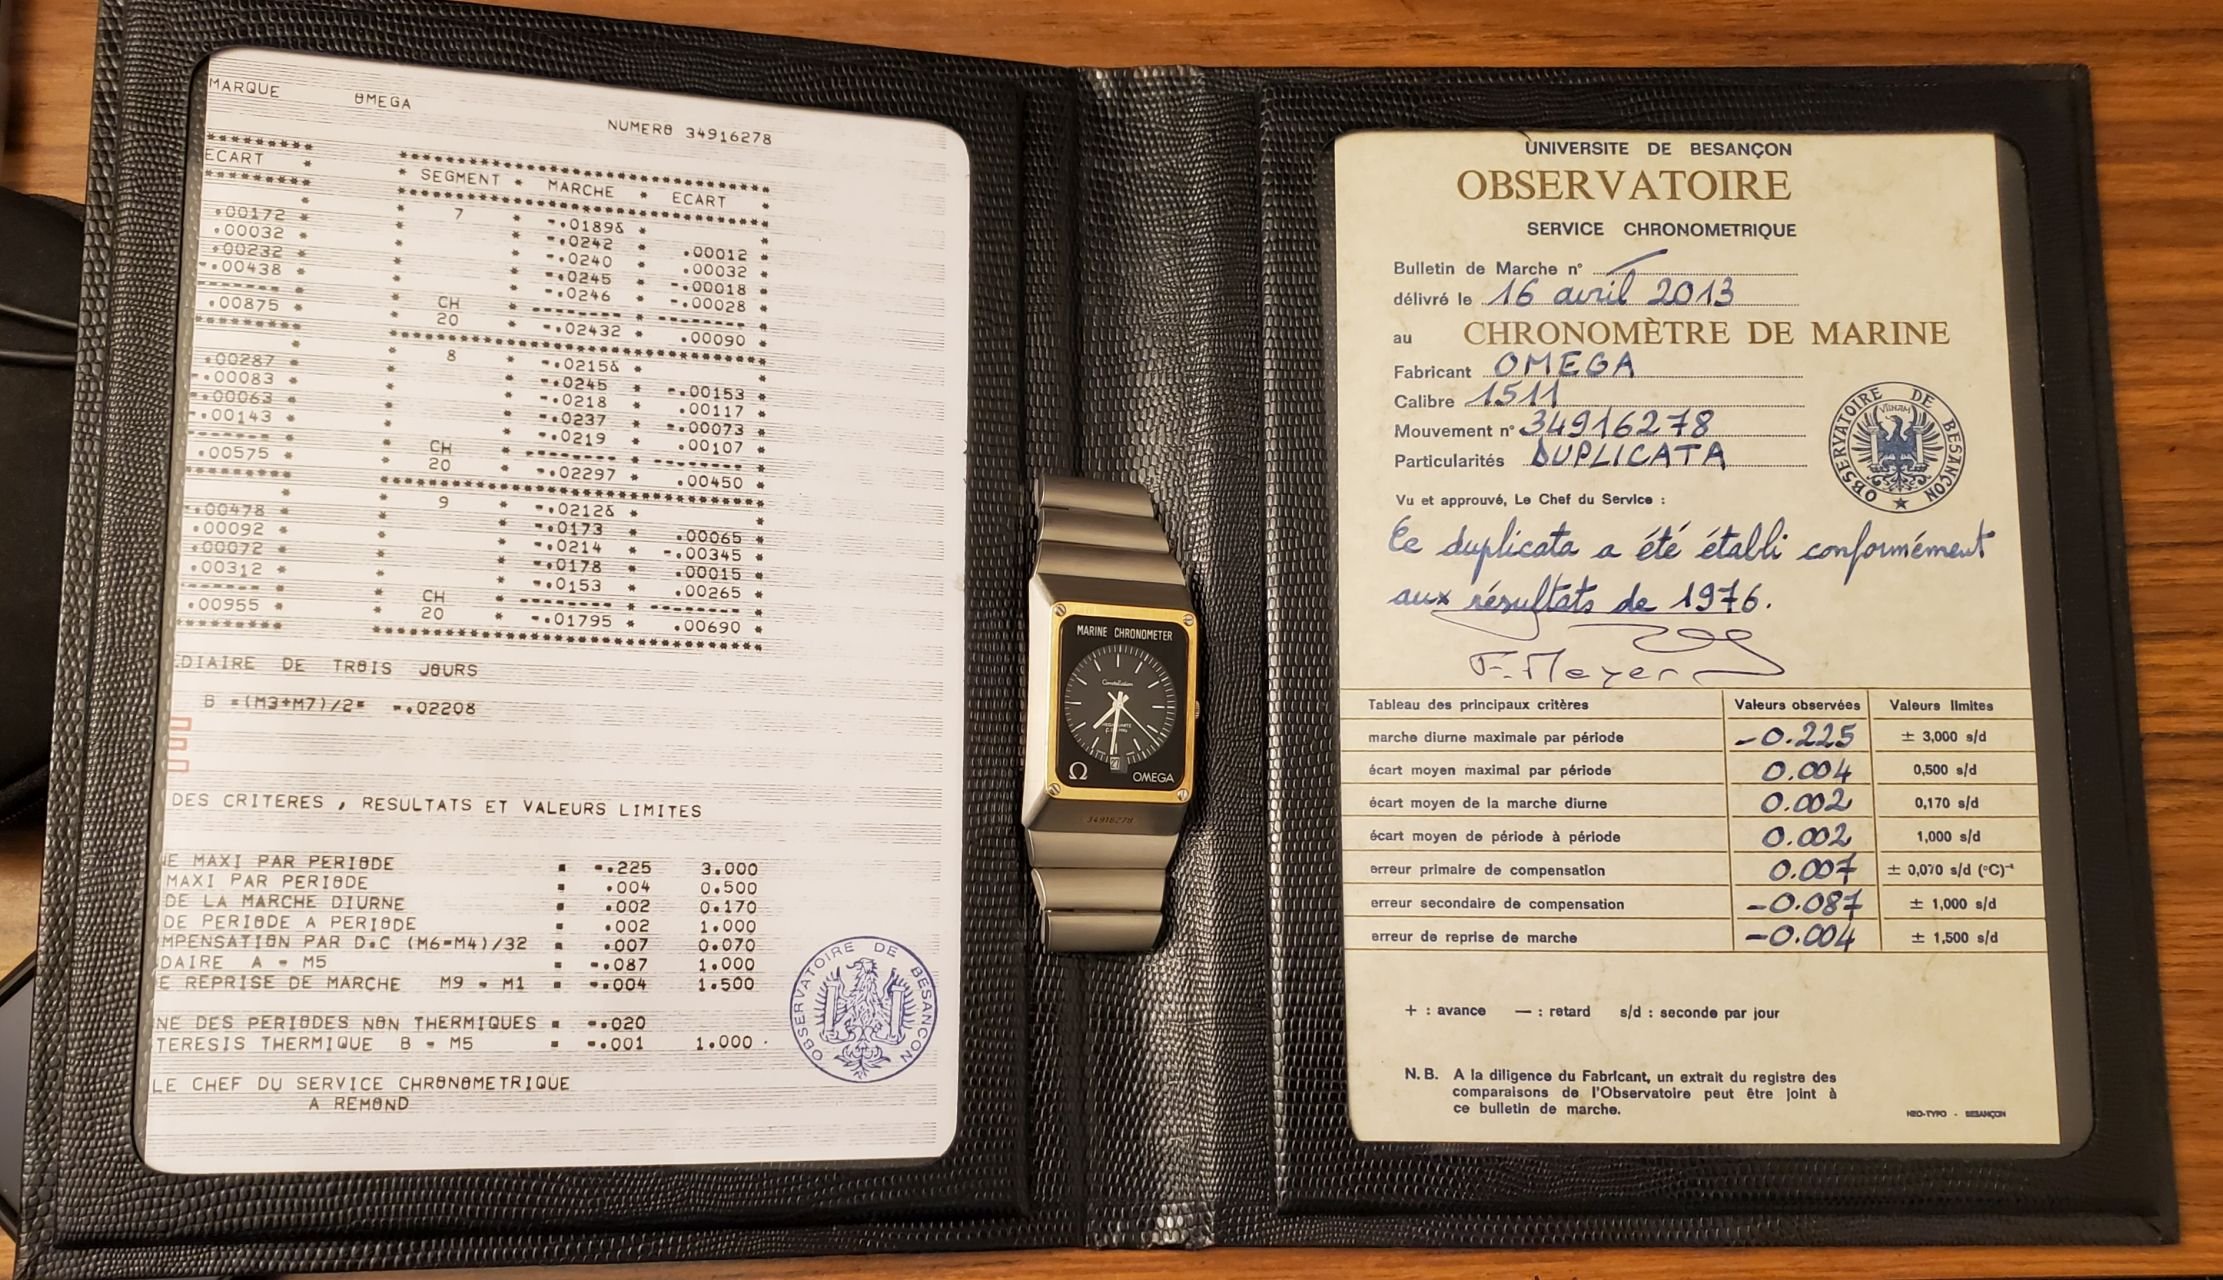 MARQUE OMEGA
NUMERO 34916278
ECART
.00172
.00032
.00232
-.00438
.00875
.00287
-.00083
-.00063
-.00143
.00575
-.00478
.00092
.00072
.00312
.00955
SEGMENT * MARCHE * ECART
7 * -.0189& *
* -.0242 * .00012 *
* -.0240 * .00032 *
* -.0245 * -.00018 *
* -.0246 * -.00028 *
CH * -------- * -------- *
20 * -.02432 * .00090 *
8 * -.0215& *
* -.0245 * -.00153 *
* -.0218 * .00117 *
* -.0237 * -.00073 *
* -.0219 * .00107 *
CH * -------- * -------- *
20 * -.02297 * .00450 *
9 * -.0212& *
* -.0173 * .00065 *
* -.0214 * -.00345 *
* -.0178 * .00015 *
* -.0153 * .00265 *
CH * -------- * -------- *
20 * -.01795 * .00690 *
DIAIRE DE TROIS JOURS
B =(M3+M7)/2= -.02208
DES CRITERES , RESULTATS ET VALEURS LIMITES
E MAXI PAR PERIODE = -.225 3.000
MAXI PAR PERIODE = .004 0.500
DE LA MARCHE DIURNE = .002 0.170
DE PERIODE A PERIODE = .002 1.000
MPENSATION PAR D.C (M6-M4)/32 = .007 0.070
DAIRE A - M5 = -.087 1.000
E REPRISE DE MARCHE M9 - M1 = -.004 1.500
NE DES PERIODES NON THERMIQUES = -.020
TERESIS THERMIQUE B - M5 = -.001 1.000
LE CHEF DU SERVICE CHRONOMETRIQUE
A REMOND
OBSERVATOIRE DE BESANCON
MARINE CHRONOMETER
Constellation
21
Ω OMEGA
34916278
UNIVERSITE DE BESANÇON
OBSERVATOIRE
SERVICE CHRONOMETRIQUE
Bulletin de Marche n°
délivré le 16 avril 2013
au CHRONOMÈTRE DE MARINE
Fabricant OMEGA
Calibre 1511
Mouvement n° 34916278
Particularités DUPLICATA
OBSERVATOIRE DE BESANÇON
Vu et approuvé, Le Chef du Service :
Ce duplicata a été établi conformément
aux résultats de 1976.
F. Meyer
Tableau des principaux critères Valeurs observées Valeurs limites
marche diurne maximale par période -0.225 ± 3,000 s/d
écart moyen maximal par période 0.004 0,500 s/d
écart moyen de la marche diurne 0.002 0,170 s/d
écart moyen de période à période 0.002 1,000 s/d
erreur primaire de compensation 0.007 ± 0,070 s/d (°C)⁻¹
erreur secondaire de compensation -0.087 ± 1,000 s/d
erreur de reprise de marche -0.004 ± 1,500 s/d
+ : avance — : retard s/d : seconde par jour
N.B. A la diligence du Fabricant, un extrait du registre des
comparaisons de l'Observatoire peut être joint à
ce bulletin de marche.
NEO-TYPO - BESANÇON